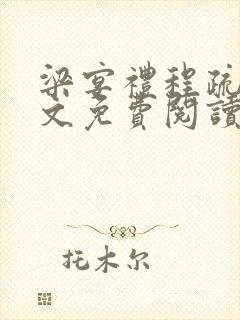 梁宴禮程疏
文免費閱讀
托木尔